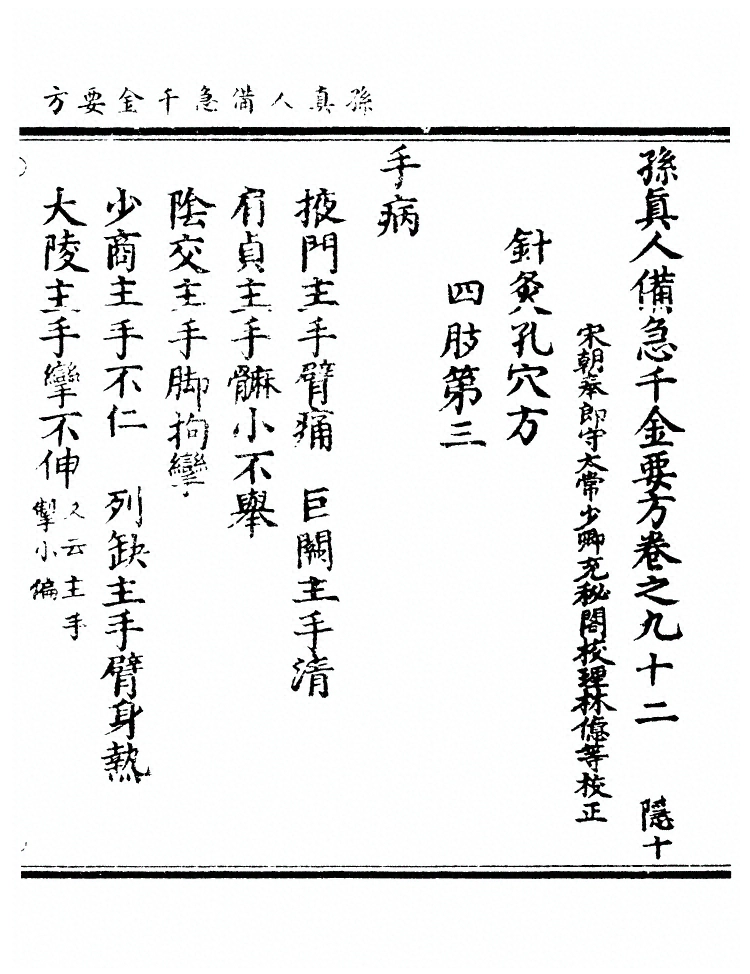 孫真人備急千金要方
孫眞人備急千金要方卷之九十二 隱十
宋朝奉郎守太常少卿充秘閣校理林億等校正
針灸孔穴方
四肢第三
手病
掖門主手臂痛 巨闕主手清
肩貞主手髍小不舉
陰交主手脚拘攣
少商主手不仁 列缺主手臂身熱
大陵主手攣不伸又云主手掣小偏